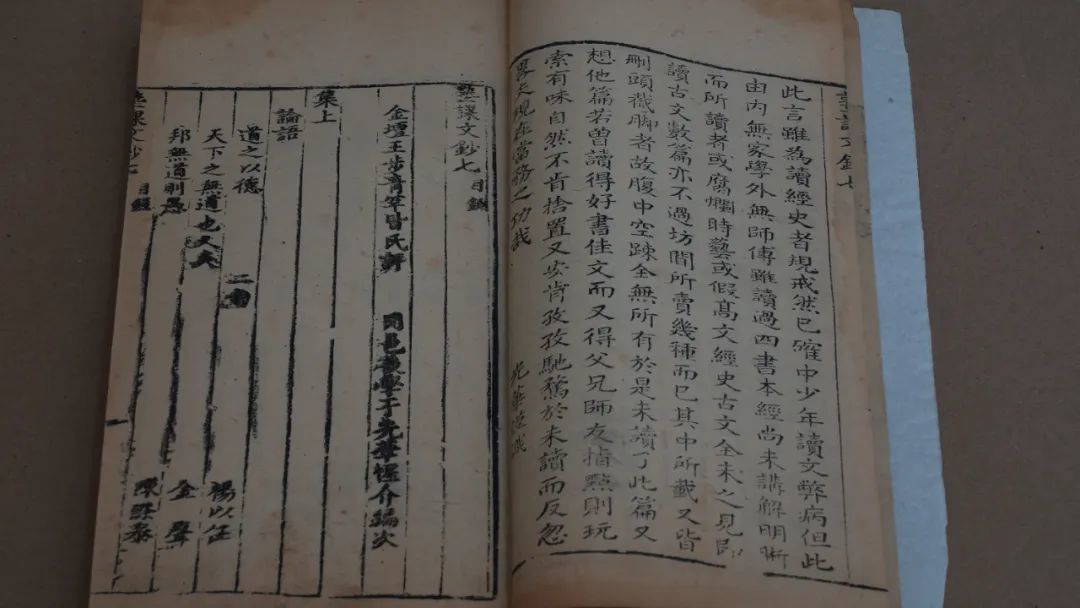 此言雖為讀經史者規戒然已確中少年讀文弊病但此
由內無家學外無師傳雖讀過四書本經尚未講解明晰
而所讀者或腐爛時藝或假髙文經史古文全未之見即
讀古文數篇亦不過坊間所賣幾種而已其中所載又皆
刪頭截脚者故腹中空踈全無所有於是未讀了此篇又
想他篇若曾讀得好書佳文而又得父兄師友指㸃則玩
索有味自然不肯捨置又安肯孜孜馳騖於未讀而反忽
畧夫現在當務之功哉
課文鈔七 目錄
金壇王步青罕皆氏評 同邑 編次
集上
論語
道之以德 楊以任
天下之無道也久矣 二首 金聲
邦無道則愚 陳際泰
課文鈔七 目錄